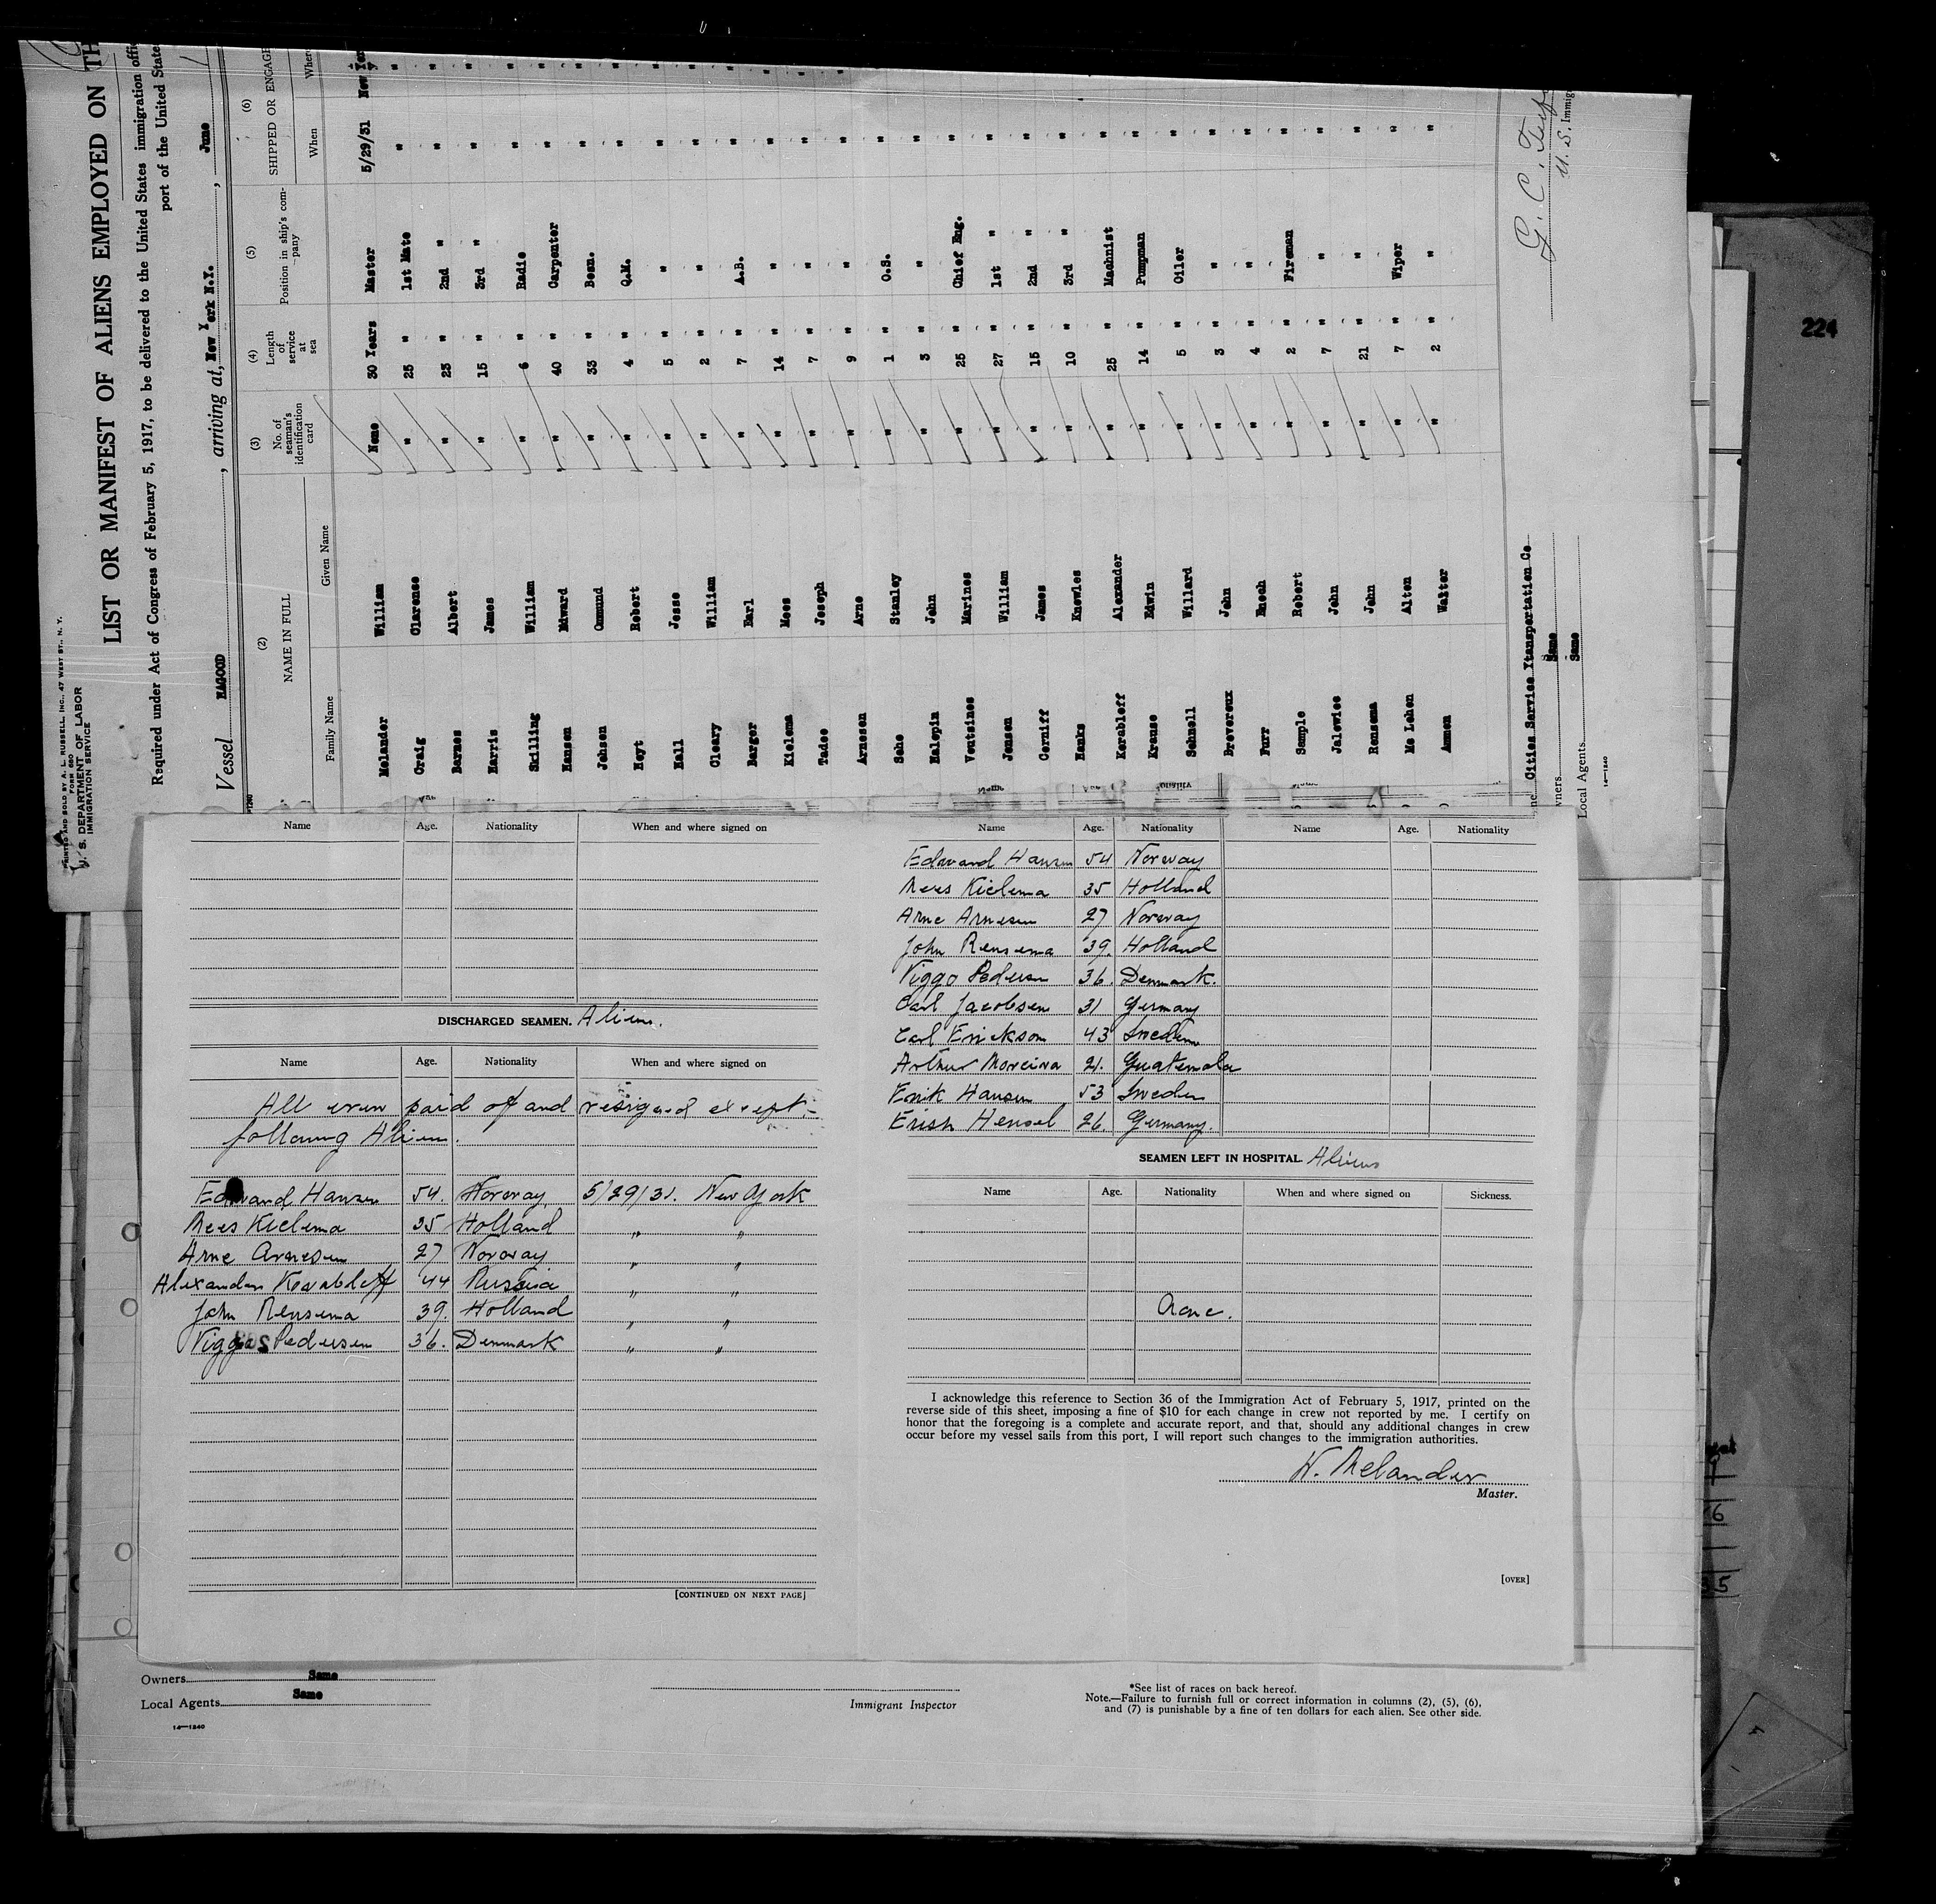 PRINTED AND SOLD BY A. L. RUSSELL, INC., 47 WEST ST., N. Y.
FORM 680
U. S. DEPARTMENT OF LABOR
IMMIGRATION SERVICE
LIST OR MANIFEST OF ALIENS EMPLOYED ON TH
Required under Act of Congress of February 5, 1917, to be delivered to the United States immigration offi
port of the United State
Vessel NAGOOD, arriving at, New York N.Y., June
(2) (3) (4) (5) (6)
NAME IN FULL No. of seaman's identification card Length of service at sea Position in ship's company SHIPPED OR ENGAGE
Family Name Given Name When Wher
Melander William None 30 Years Master 5/29/31 New York
Craig Clarence " 25 " 1st Mate " "
Barnes Albert " 23 " 2nd " " "
Harris James " 15 " 3rd " " "
Skilling William " 6 " Radio " "
Hansen Edward " 40 " Carpenter " "
Johsen Osmund " 33 " Bosn. " "
Hoyt Robert " 4 " Q.M. " "
Hall Jesse " 5 " " " "
Cleary William " 2 " " " "
Barger Earl " 7 " A.B. " "
Kielema Mees " 14 " " " "
Tadee Joseph " 7 " " " "
Arnesen Arne " 9 " " " "
Sehe Stanley " 1 " O.S. "
Halepin John " 3 " " "
Voutsines Marines " 25 " Chief Eng. "
Jensen William " 27 " 1st " "
Cerniff James " 15 " 2nd " "
Hanks Knowles " 10 " 3rd " "
Korableff Alexander " 25 " Machnist "
Krause Edwin " 14 " Pumpman "
Schnell Willard " 5 " Oiler "
Brevereux John " 3 " " "
Furr Enoch " 4 " " "
Semple Robert " 2 " Fireman "
Jalewice John " 7 " " "
Rensema John " 21 " " "
Mc Lehen Alten " 7 " Wiper "
Annen Walter " 2 " " "
Cities Service Ttansportation Co
wners Same
Local Agents Same
14—1240
G. C.
U. S. Immig
224
Name Age. Nationality When and where signed on
DISCHARGED SEAMEN. Aliens.
Name Age. Nationality When and where signed on
All crew paid of and resigned except:-
following Aliens.
Edward Hansen 54. Norway 5/29/31. New York
Mees Kielema 35 Holland " "
Arne Arnesen 27 Norway " "
Alexander Korableff 44 Russia " "
John Rensema 39. Holland " "
Viggo Pedersen 36. Denmark " "
[CONTINUED ON NEXT PAGE]
Name Age. Nationality Name Age. Nationality
Edward Hansen 54 Norway
Mees Kielema 35 Holland
Arne Arnesen 27 Norway
John Rensema 39. Holland
Viggo Pedersen 36. Denmark.
Carl Jacobsen 31 Germany
Carl Erickson 43 Sweden
Arthur Moreira 21. Guatemala
Erik Hansen 53 Sweden
Erish Hensel 26. Germany.
SEAMEN LEFT IN HOSPITAL. Aliens
Name Age. Nationality When and where signed on Sickness.
None.
I acknowledge this reference to Section 36 of the Immigration Act of February 5, 1917, printed on the
reverse side of this sheet, imposing a fine of $10 for each change in crew not reported by me. I certify on
honor that the foregoing is a complete and accurate report, and that, should any additional changes in crew
occur before my vessel sails from this port, I will report such changes to the immigration authorities.
W. Melander
Master.
[OVER]
Owners Same
Local Agents Same
14—1240
Immigrant Inspector
*See list of races on back hereof.
Note.—Failure to furnish full or correct information in columns (2), (5), (6),
and (7) is punishable by a fine of ten dollars for each alien. See other side.